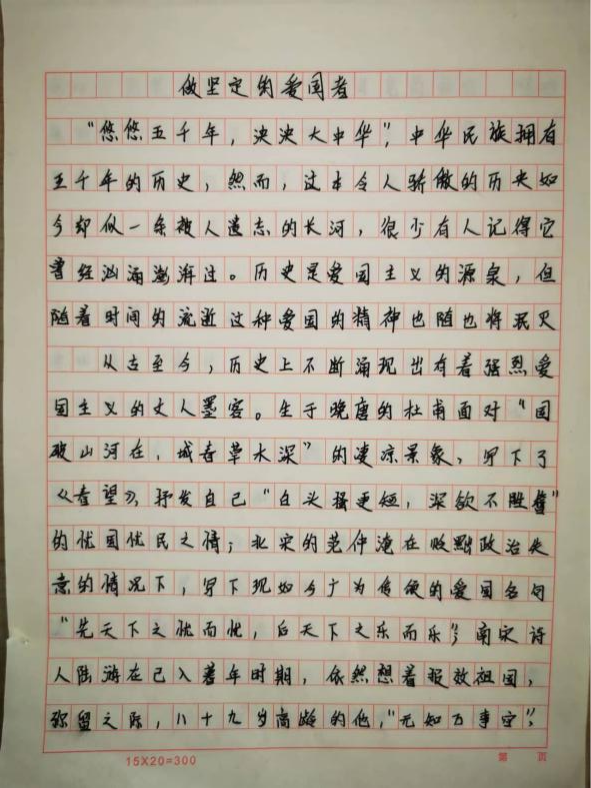 做坚定的爱国者
“悠悠五千年，泱泱大中华”，中华民族拥有
五千年的历史，然而，这本令人骄傲的历史如
今却似一条被人遗忘的长河，很少有人记得它
曾经汹涌澎湃过。历史是爱国主义的源泉，但
随着时间的流逝这种爱国的精神也随也将泯灭
从古至今，历史上不断涌现出有着强烈爱
国主义的文人墨客。生于晚唐的杜甫面对“国
破山河在，城春草木深”的凄凉景象，写下了
《春望》，抒发自己“白头搔更短，浑欲不胜簪”
的忧国忧民之情；北宋的范仲淹在收黜政治失
意的情况下，写下现如今广为传颂的爱国名句
“先天下之忧而忧，后天下之乐而乐”；南宋诗
人陆游在已入暮年时期，依然想着报效祖国，
弥留之际，八十九岁高龄的他，“元知万事空”，
15X20=300
第 页